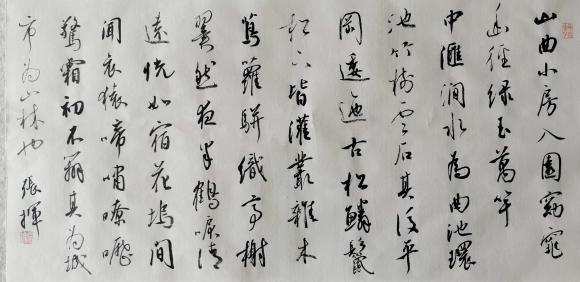 山曲小房入園窈窕
幽徑绿玉萬竿
中滙澗水為曲池環
池竹樹云石其後平
岡逶迤古松鱗鬣
松下皆灌叢雜木
蔦蘿駢織亭榭
翼然夜半鶴唳清
遠恍如宿花塢間
聞哀猿啼嘯嘹嚦
驚霜初不辨其為城
市為山林也 張揮